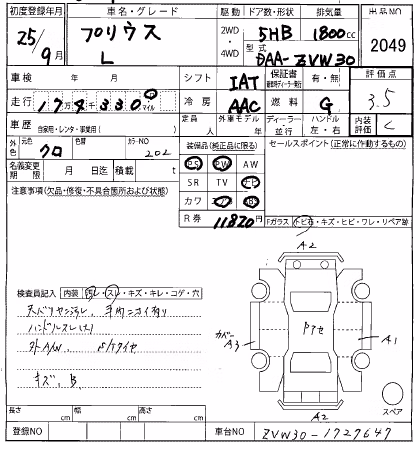 初度登録年月 車名・グレード 駆動 ドア数・形状 排気量 出品NO
25年 プリウス 2WD 5HB 1800cc
9月 L 4WD 型式 DAA-ZVW30 2049
車検 年 月 シフト IAT 保証書 有・無 評価点
走行 17万4千330 マイル 冷房 AAC 燃料 G 3.5
車歴 自家用・レンタ・事業用( ) 定員 人 外車モデル 年 ディーラー 並行 ハンドル 左・右 内装評価 C
外色 元色 クロ 色替 カラーNO 202 装備品(純正品に限る) セールスポイント(正常に作動するもの)
PS PW AW
名義変更期限 月 日迄 積載 t SR TV ナビ
注意事項(欠品・修復・不具合箇所および状態) カワ
R券 11820円 Fガラス トビ石・キズ・ヒビ・ワレ・リペア跡
A2
検査員記入 内装 汚レ・スレ・キズ・キレ・コゲ・穴
カバー A3 A1
ハンドルスレ(大)
外A/W
キズ、B
スペア
A2
長さ cm 幅 cm 高さ cm
登録NO 車台NO ZVW30-1727647